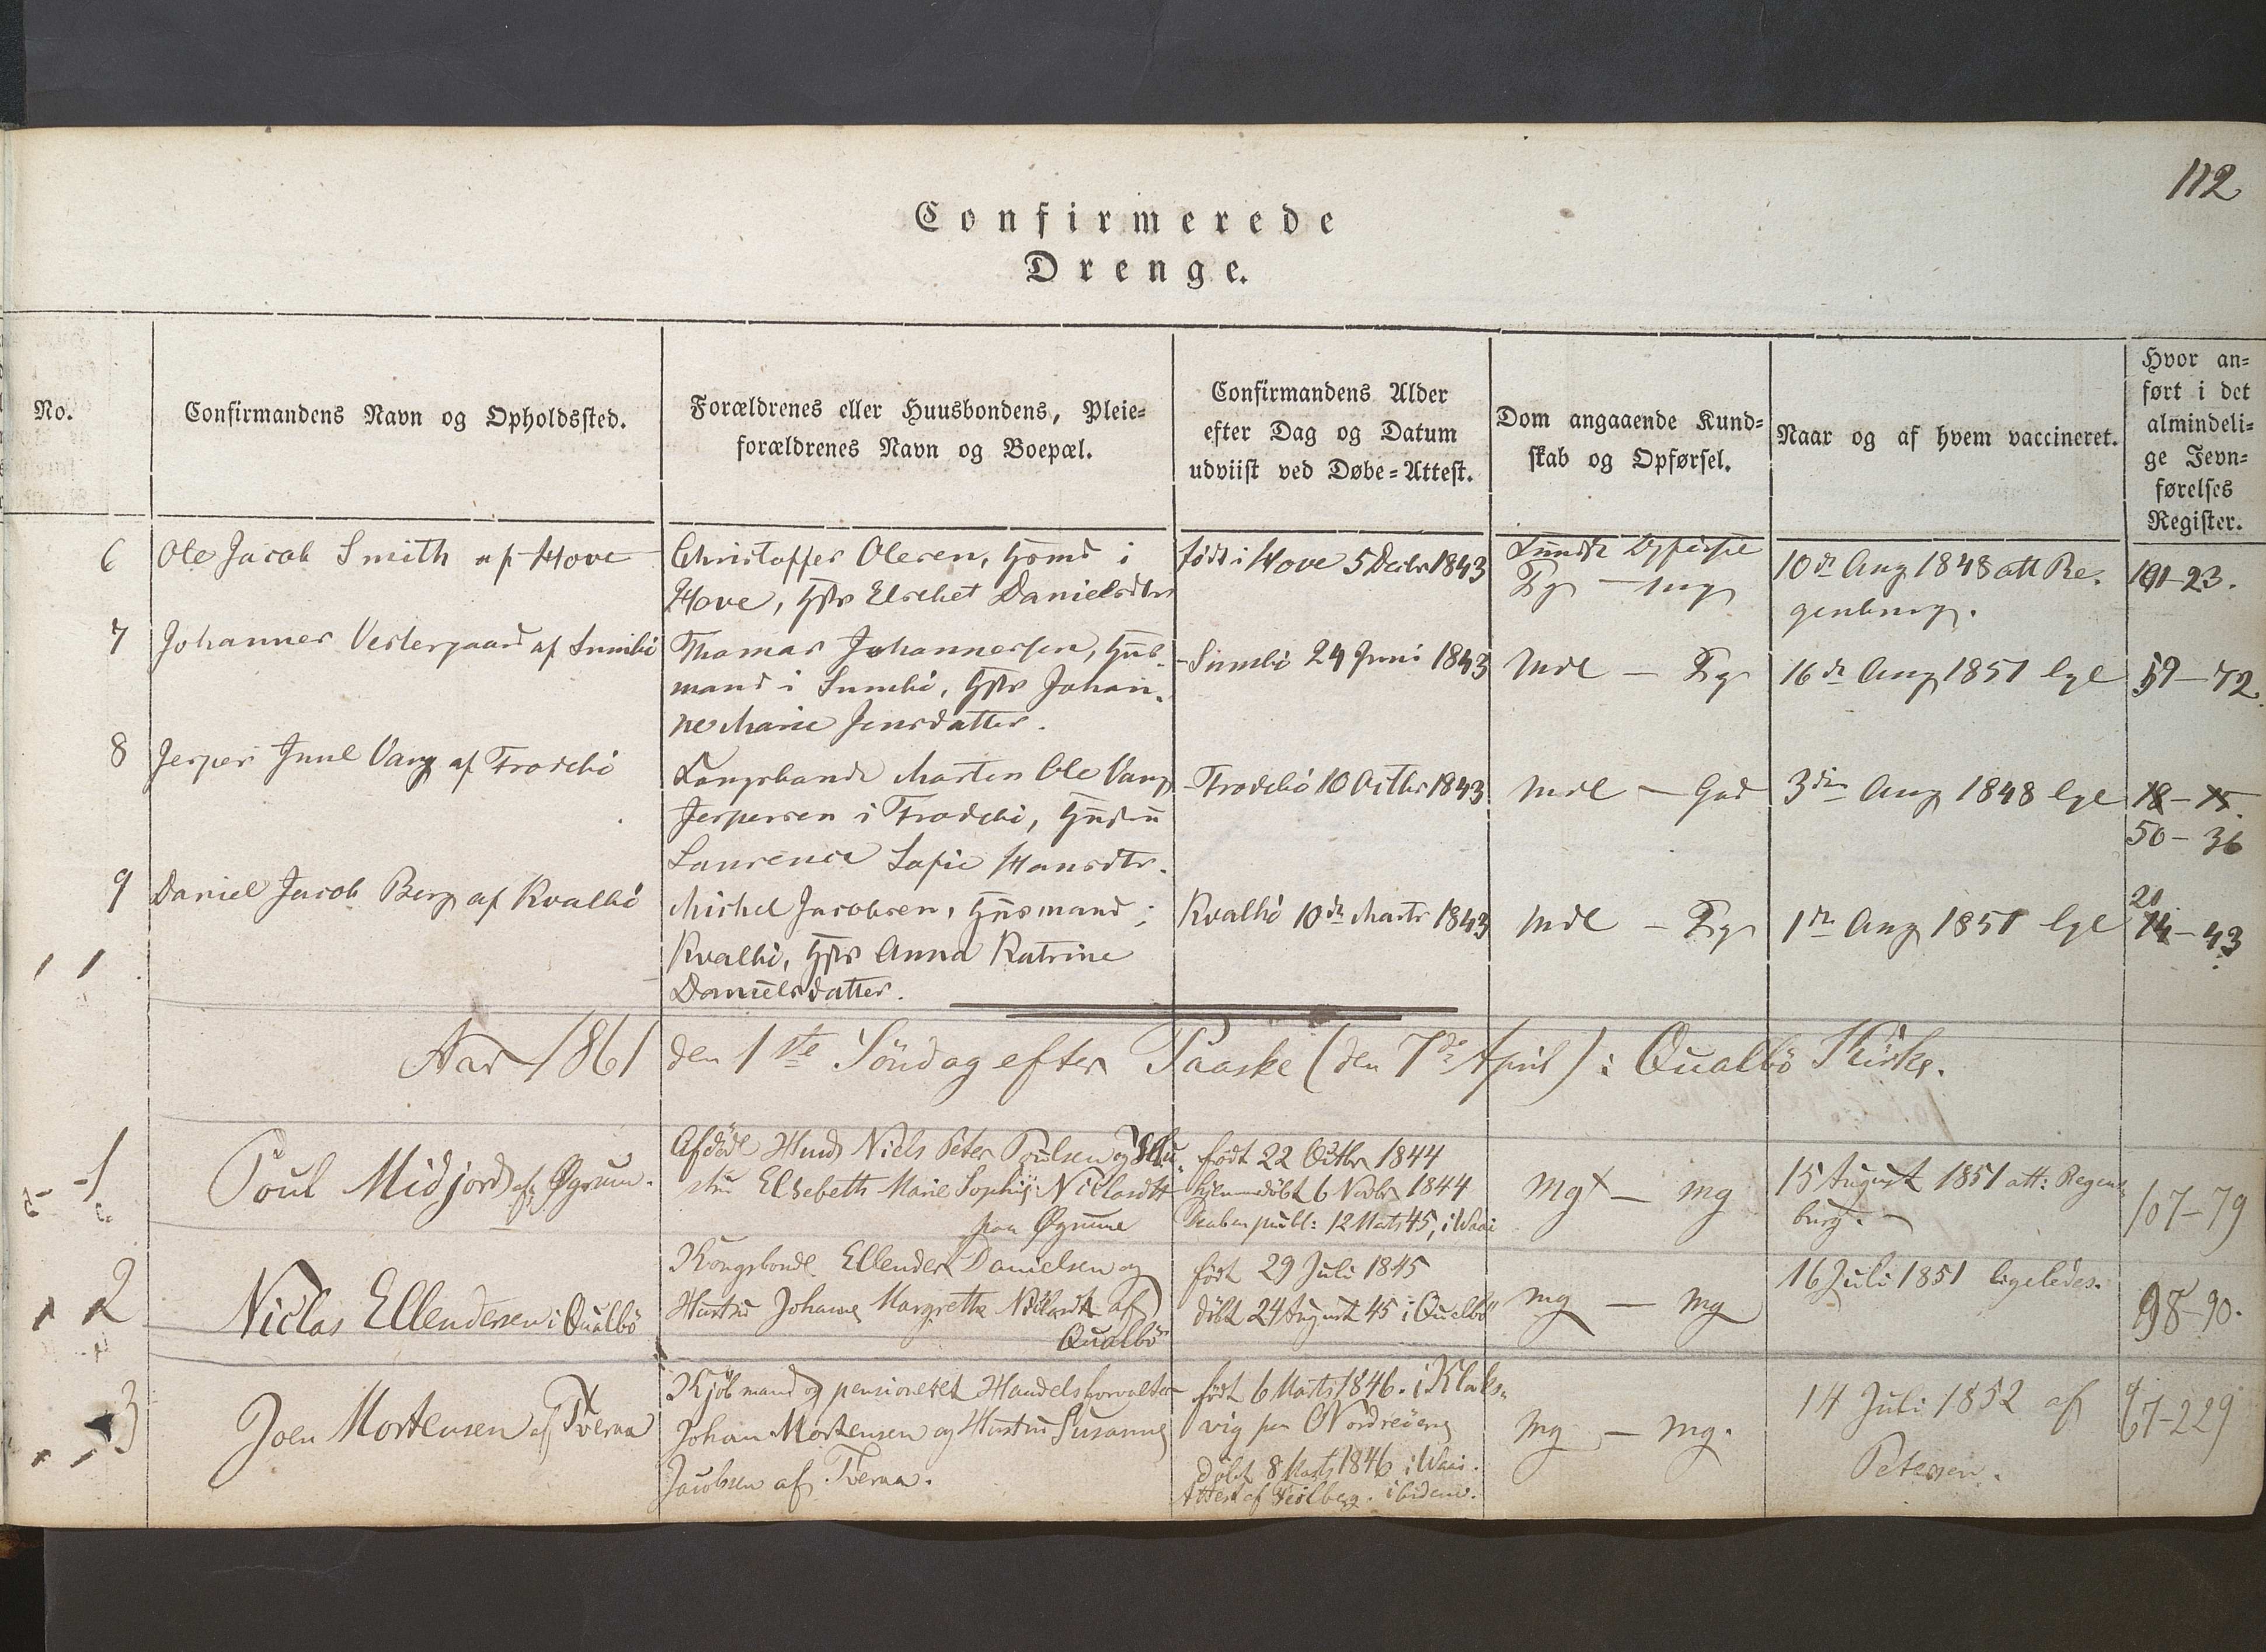 112
Confirmerede
Drenge.
No.
Confirmandens Navn og Opholdssted.
Forældrenes eller Huusbondens, Pleie=
forældrenes Navn og Boepæl.
Confirmandens Alder
efter Dag og Datum
udviist ved Døbe=Attest.
Dom angaaende Kund=
skab og Opførsel.
Naar og af hvem vaccineret.
Hvor an=
ført i det
almindeli=
ge Jevn=
førelses
Register.
6
Ole Jacob Smith af Hove
Christoffer Olesen, i
Hove, Elsebet Danielsdtr
født i Hove 5 Decbr 1843
Tg - mg
10de Aug 1848 att Re-
genburg.
101-23.
7
Johannes Vestergaard af Sumbö
Thomas Johannessen, Huus-
mand i Sumbö, Johan-
ne Marie Jensdatter.
- Sumbö 24 Juni 1843
Mdl - Tg
16de Aug 1851 lgl
59-72.
8
Jesper Juul Vang af Frodebö
Kongsbonde Morten Ole Vang
Jespersen i Frodebö,
Laurence Sofie Hansdtr.
- Frodebö 10 Octbr 1843
Mdl - God
3die Aug 1848 lgl
18-15.
50-36
9
Daniel Jacob Berg af Kvalbö
Michel Jacobsen, Huusmand i
Kvalbö, Anna Katrine
Danielsdatter.
Kvalbö 10de Marts 1843
Mdl - Tg
1de Aug 1851 lgl
20
14-43
Aar 1861 den 1ste Söndag efter Paaske (den 7de April) i Qualbö Kirke.
1
Poul Midjord af Øgrum.
Afdöde Niels Peter Poulsen og Hu-
stru Elsebeth Marie Sophie
paa Øgrum
født 22 Octbr 1844
hjemmedöbt 6 Novbr 1844
publ: 12 Marts 45, i Waai
mg+ - mg
15 August 1851 att: Regen-
burg.
107-79
2
Niclas Ellendersen i Qualbö
Kongsbonde Ellender Danielsen og
Hustru Johanne Margrethe af
Qualbö
født 29 Juli 1845
döbt 24 August 45 i Qualbö
mg - mg
16 Juli 1851 ligeledes.
98-90.
3
Joen Mortensen af Tveraa
Kjöbmand og pensioneret Handelsforvalter
Johan Mortensen og Hustru Susanne
Jacobsen af Tveraa.
født 6 Marts 1846. i Klaks-
vig paa Norderöerne
Döbt 8 Marts 1846 i Waai.
Attest af ibidem.
mg - mg.
14 Juli 1852 af
Petersen.
67-229